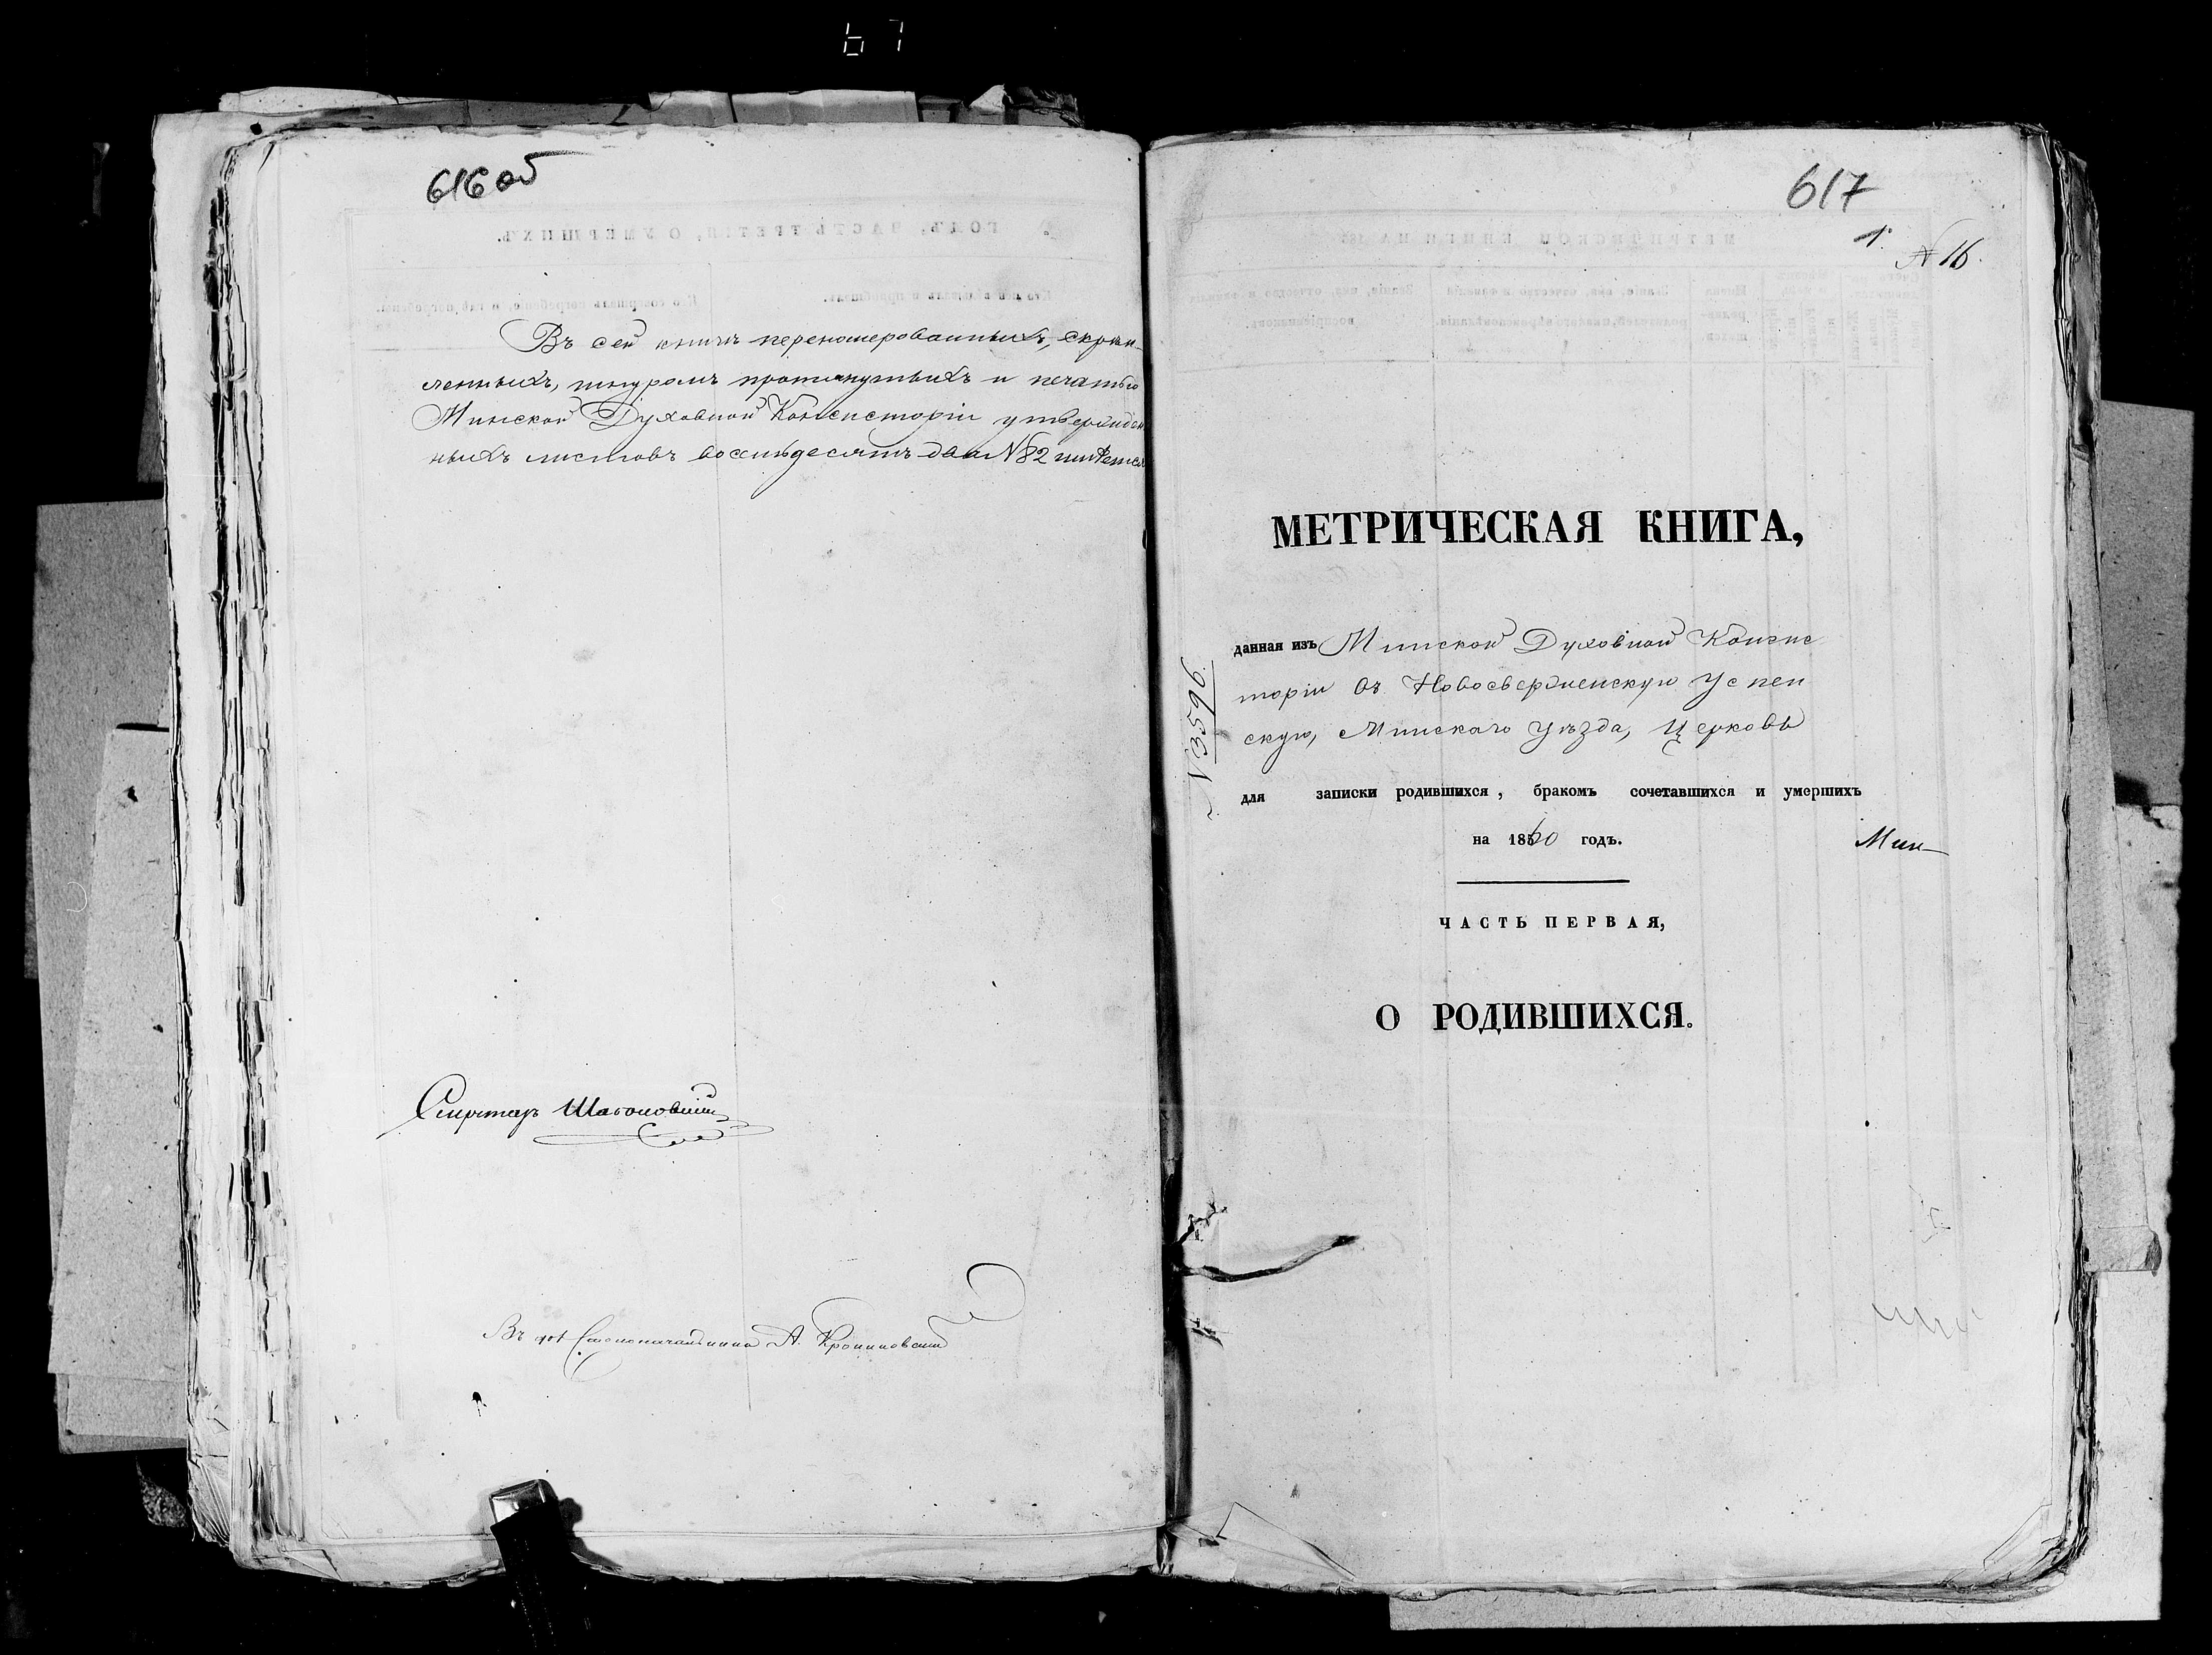 67
616 об
Въ сей книгѣ перенумерованныхъ, скрѣп-
ленныхъ, шнуромъ протянутыхъ и печатью
Минской Духовной Консисторіи утвержден
ныхъ листовъ восемьдесятъ два № 82 имѣется
Секретарь
Въ
Столоначальника А.
617
1.
№ 16.
МЕТРИЧЕСКАЯ КНИГА,
данная изъ Минской Духовной Консис
торіи въ Новосверженскую Успен
скую, Минскаго уѣзда, Церковь
№ 3596.
для записки родившихся, бракомъ сочетавшихся и умершихъ
на 1860 годъ.
Мин-
ЧАСТЬ ПЕРВАЯ,
О РОДИВШИХСЯ.